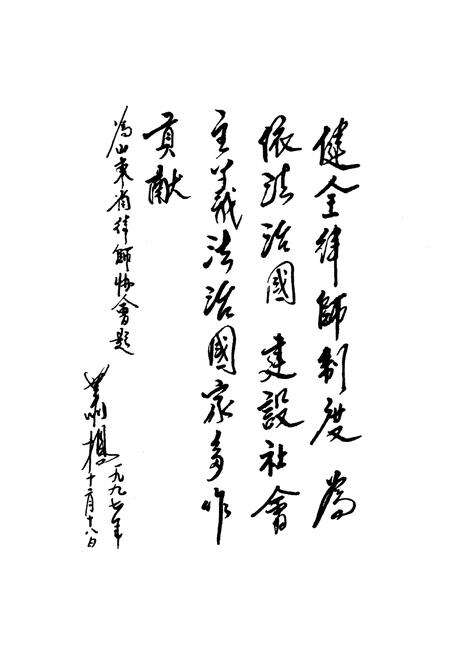 健全律師制度 為
依法治國 建設社會
主義法治國家多作
貢獻
為山東省律師協會題
肖揚
一九九七年
十二月十八日